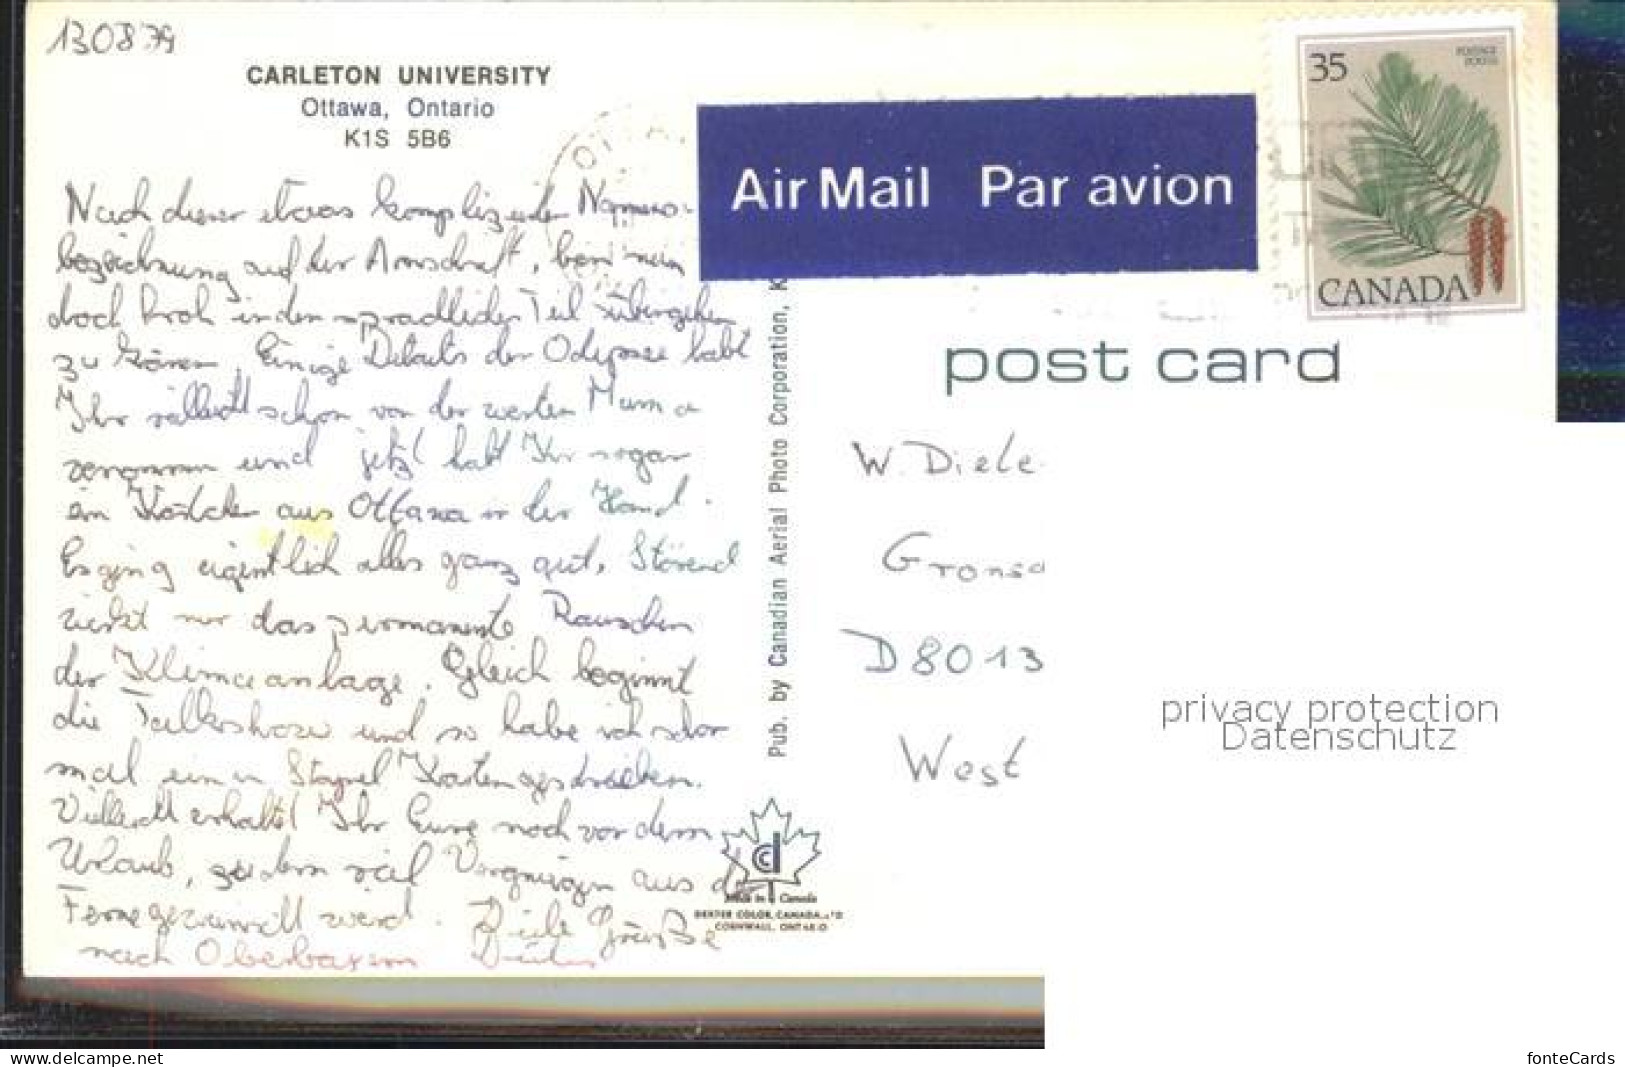 130879
CARLETON UNIVERSITY
Ottawa, Ontario
K1S 5B6
Air Mail Par avion
35
POSTAGE
POSTES
CANADA
post card
Nach dieser etwas komplizierten Namens-
bezeichnung auf der Anschrift, kann man
doch froh in den sprachlichen Teil übergehen
zu können. Einige Details der Odyssee habt
Ihr vielleicht schon von der werten Mama
vernommen und jetzt habt Ihr sogar
ein Kärtchen aus Ottawa in der Hand.
Es ging eigentlich alles ganz gut. Störend
wirkt nur das permanente Rauschen
der Klimaanlage. Gleich beginnt
die Talkshow und so habe ich schon
mal einen Stapel Karten geschrieben.
Vielleicht erhaltet Ihr Eure noch vor dem
Urlaub, zu dem viel Vergnügen aus der
Ferne gewünscht wird. Viele Grüße
nach Oberbayern
W. Diele
Gronsd
D 8013
West
Pub. by Canadian Aerial Photo Corporation, K
cd
Made in Canada
DEXTER COLOR, CANADA, LTD
CORNWALL, ONTARIO
privacy protection
Datenschutz
www.delcampe.net
fonteCards